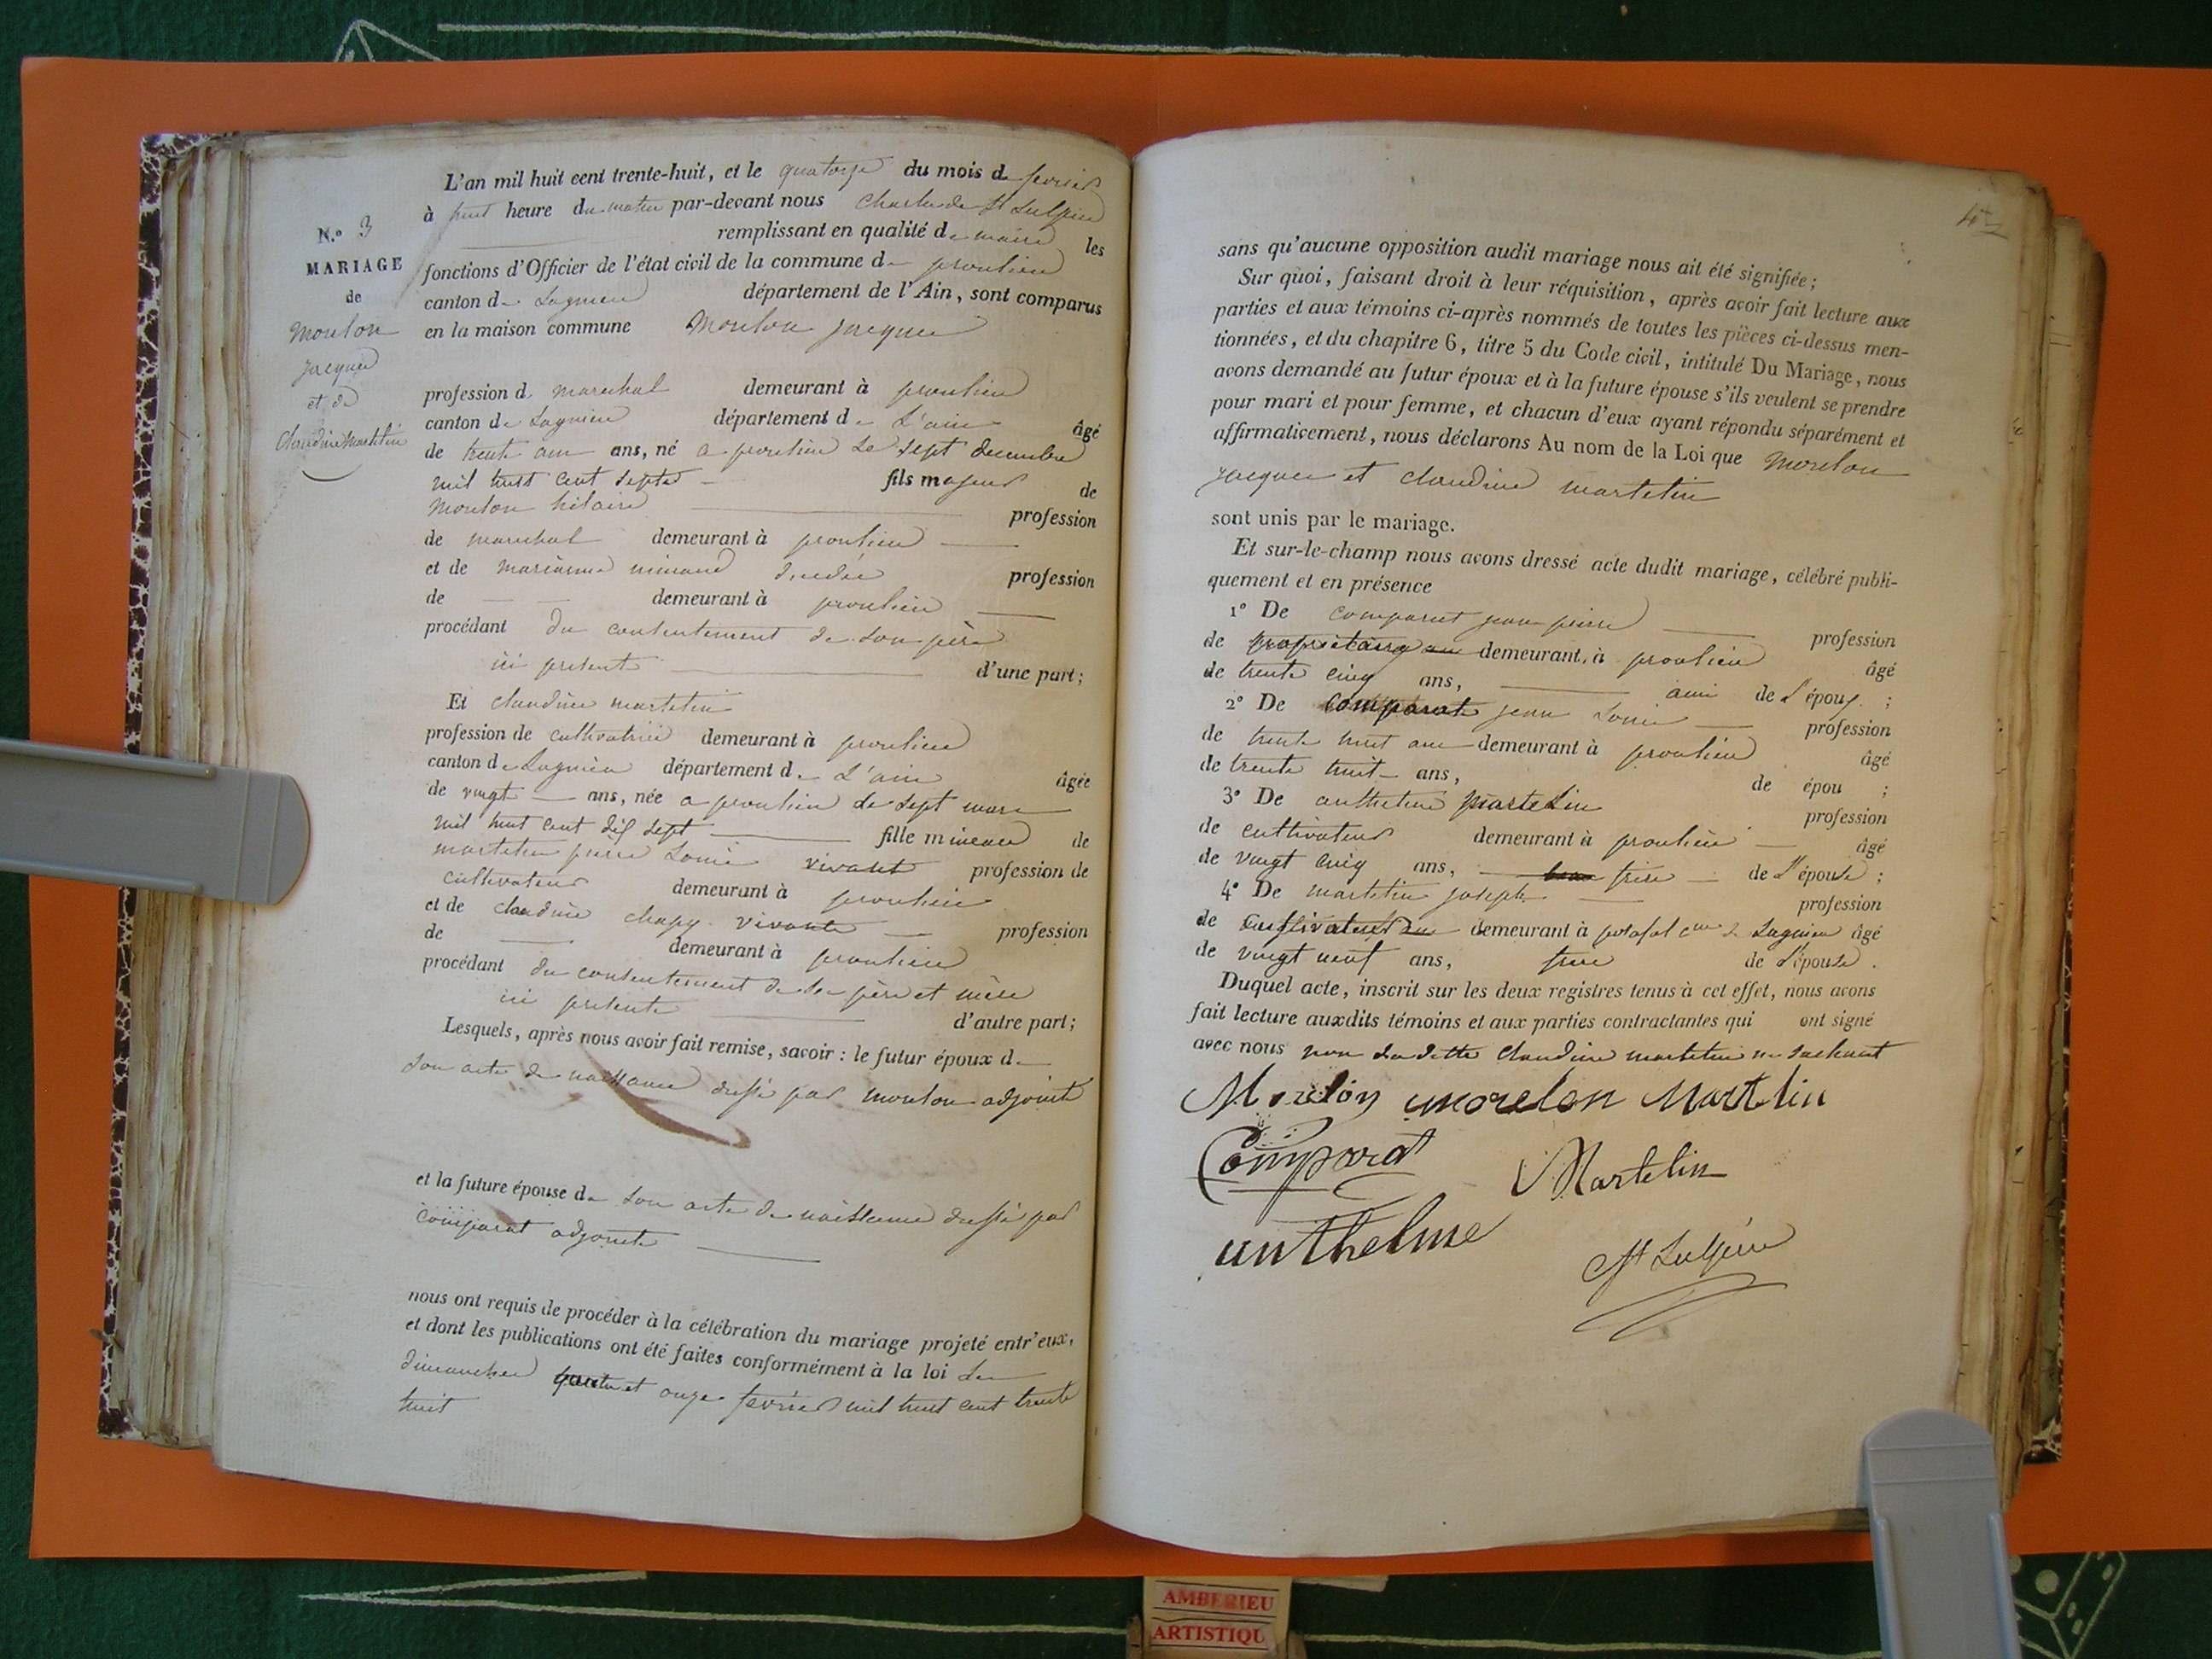 L'an mil huit cent trente-huit, et le quatorze du mois de fevrier
à huit heure du matin par-devant nous Charles de St Sulpice
remplissant en qualité de maire les
fonctions d'Officier de l'état civil de la commune de proulieu
canton de Lagnieu département de l'Ain, sont comparus
en la maison commune Moulon jacque
N.° 3
MARIAGE
de
Moulon
jacque
et de
Claudine Martelin
profession de marechal demeurant à proulieu
canton de Lagnieu département de L'ain âgé
de trente ans ans, né a proulieu Le sept decembre
mil huit cent sept fils majeur de
Moulon hilaire profession
de marechal demeurant à proulieu
et de marianne décédée profession
de demeurant à proulieu
procédant du consentement de son père
ici présent d'une part;
Et claudine martelin
profession de cultivatrice demeurant à proulieu
canton de Lagnieu département de L'ain âgée
de vingt ans, née a proulieu Le sept mars
mil huit cent dix sept fille mineure de
martelin pierre Louis vivant profession de
cultivateur demeurant à proulieu
et de claudine chapy vivante profession
de demeurant à proulieu
procédant du consentement de ses père et mère
ici présents d'autre part;
Lesquels, après nous avoir fait remise, savoir: le futur époux de
son acte de naissance dressé par moulon adjoint
et la future épouse de son acte de naissance dressé par
comparat adjoint
nous ont requis de procéder à la célébration du mariage projeté entr'eux,
et dont les publications ont été faites conformément à la loi les
dimanches quatre et onze fevrier mil huit cent trente
huit
sans qu'aucune opposition audit mariage nous ait été signifiée;
Sur quoi, faisant droit à leur réquisition, après avoir fait lecture aux
parties et aux témoins ci-après nommés de toutes les pièces ci-dessus men-
tionnées, et du chapitre 6, titre 5 du Code civil, intitulé Du Mariage, nous
avons demandé au futur époux et à la future épouse s'ils veulent se prendre
pour mari et pour femme, et chacun d'eux ayant répondu séparément et
affirmativement, nous déclarons Au nom de la Loi que Moulon
jacque et claudine martelin
sont unis par le mariage.
Et sur-le-champ nous avons dressé acte dudit mariage, célébré publi-
quement et en présence
1° De comparat jean pierre profession
de propriétaire demeurant à proulieu âgé
de trente cinq ans, ami de L'époux ;
2° De comparat jean Louis profession
de trente huit ans demeurant à proulieu âgé
de trente huit ans, de épou ;
3° De anthelme martelin profession
de cultivateur demeurant à proulieu âgé
de vingt cinq ans, frère de L'épouse ;
4° De martelin joseph profession
de cultivateur demeurant à posafol con de Lagnieu âgé
de vingt neuf ans, frere de L'épouse .
Duquel acte, inscrit sur les deux registres tenus à cet effet, nous avons
fait lecture auxdits témoins et aux parties contractantes qui ont signé
avec nous non La ditte claudine martelin ne sachant
Morelon morelon Martelin
Comparat
Martelin
anthelme
St Sulpice
AMBERIEU
ARTISTIQU